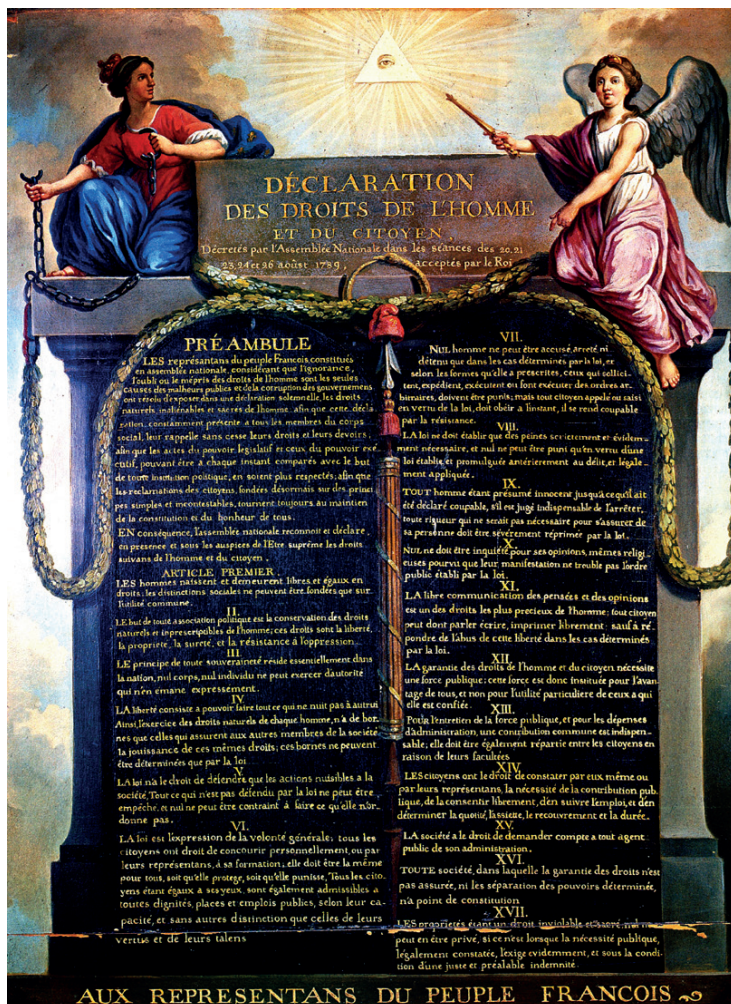 DÉCLARATION
DES DROITS DE L'HOMME
ET DU CITOYEN,
Décretés par l'Assemblée Nationale dans les séances des 20. 21
23. 24 et 26 aoûst 1789, acceptés par le Roi
PRÉAMBULE
LES représantans du peuple Francois, constitués
en assemblée nationale, considérant que l'ignorance,
l'oubli ou le mépris des droits de l'homme sont les seules
causes des malheurs publics et de la corruption des gouvernemens
ont résolu d'exposer dans une déclaration solemnelle, les droits
naturels, inaliénables et sacrés de l'homme; afin que cette décla-
ration, constamment présente a tous les membres du corps
social, leur rappelle sans cesse leurs droits et leurs devoirs,
afin que les actes du pouvoir legislatif et ceux du pouvoir exé-
cutif, pouvant être à chaque instant comparés avec le but
de toute institution politique, en soient plus respectés; afin que
les reclamations des citoyens, fondées désormais sur des princi-
pes simples et incontestables, tournent toujours au maintien
de la constitution et du bonheur de tous.
EN conséquence, l'assemblée nationale reconnoît et déclare,
en presence et sous les auspices de l'Etre suprême les droits
suivans de l'homme et du citoyen.
ARTICLE PREMIER.
LES hommes naissent et demeurent libres et égaux en
droits; les distinctions sociales ne peuvent être fondées que sur
l'utilité commune.
II.
LE but de toute association politique est la conservation des droits
naturels et inprescriptibles de l'homme; ces droits sont la liberté,
la propriété, la sureté, et la résistance à l'oppression.
III.
LE principe de toute souveraineté réside essentiellement dans
la nation, nul corps, nul individu ne peut exercer d'autorité
qui n'en émane expressement.
IV.
LA liberté consiste a pouvoir faire tout ce qui ne nuit pas à autrui
Ainsi, l'exercice des droits naturels de chaque homme, n'a de bor-
nes que celles qui assurent aux autres membres de la société
la jouissance de ces mêmes droits; ces bornes ne peuvent
être déterminées que par la loi
V.
LA loi n'a le droit de défendre que les actions nuisibles a la
société. Tout ce qui n'est pas défendu par la loi ne peut être
empêché, et nul ne peut être contraint à faire ce qu'elle n'or-
donne pas.
VI.
LA loi est l'expression de la volonté générale; tous les
citoyens ont droit de concourir personnellement, ou par
leurs représentans, à sa formation; elle doit être la même
pour tous, soit qu'elle protege, soit qu'elle punisse, Tous les cito-
yens étant égaux à ses yeux, sont également admissibles a
toutes dignités, places et emplois publics, selon leur ca-
pacité, et sans autres distinction que celles de leurs
vertus et de leurs talens
VII.
NUL homme ne peut être accusé, arreté ni
détenu que dans les cas déterminés par la loi, et
selon les formes qu'elle a prescrites, ceux qui sollici-
tent, expédient, exécutent ou font exécuter des ordres ar-
bitraires, doivent être punis; mais tout citoyen appelé ou saisi
en vertu de la loi, doit obéir a l'instant, il se rend coupable
par la résistance.
VIII.
LA loi ne doit établir que des peines strictement et évidem-
ment nécessaire, et nul ne peut être puni qu'en vertu d'une
loi établie et promulguée antérierement au délit, et légale-
ment appliquée.
IX.
TOUT homme étant présumé innocent jusqu'a ce qu'il ait
été déclaré coupable, s'il est jugé indispensable de l'arrêter,
toute rigueur qui ne serait pas nécessaire pour s'assurer de
sa personne doit être sévèrement réprimée par la loi.
X.
NUL ne doit être inquiété pour ses opinions, mêmes religi-
euses pourvu que leur manifestation ne trouble pas l'ordre
public établi par la loi.
XI.
LA libre communication des pensées et des opinions
est un des droits les plus precieux de l'homme; tout citoyen
peut dont parler écrire, imprimer librement: sauf a ré-
pondre de l'abus de cette liberté dans les cas déterminés
par la loi.
XII.
LA garantie des droits de l'homme et du citoyen nécessite
une force publique; cette force est donc instituée pour l'avan-
tage de tous, et non pour l'utilité particuliere de ceux a qui
elle est confiée.
XIII.
POUR l'entretien de la force publique, et pour les dépenses
d'administration, une contribution commune est indispen-
sable; elle doit être également répartie entre les citoyens en
raison de leurs facultées
XIV.
LES citoyens ont le droit de constater par eux même ou
par leurs représentans, la nécessité de la contribution pub-
lique, de la consentir librement, d'en suivre l'emploi, et d'en
déterminer la quotité, l'assiette, le recouvrement et la durée.
XV.
LA société a le droit de demander compte a tout agent
public de son administration.
XVI.
TOUTE société, dans laquelle la garantie des droits n'est
pas assurée, ni les séparation des pouvoirs déterminée,
n'a point de constitution
XVII.
LES proprietés étant un droit inviolable et sacré, nul ne
peut en être privé, si ce n'est lorsque la nécessité publique,
légalement constatée, l'exige evidemment, et sous la condi-
tion d'une juste et préalable indemnité.
AUX REPRESENTANS DU PEUPLE FRANCOIS